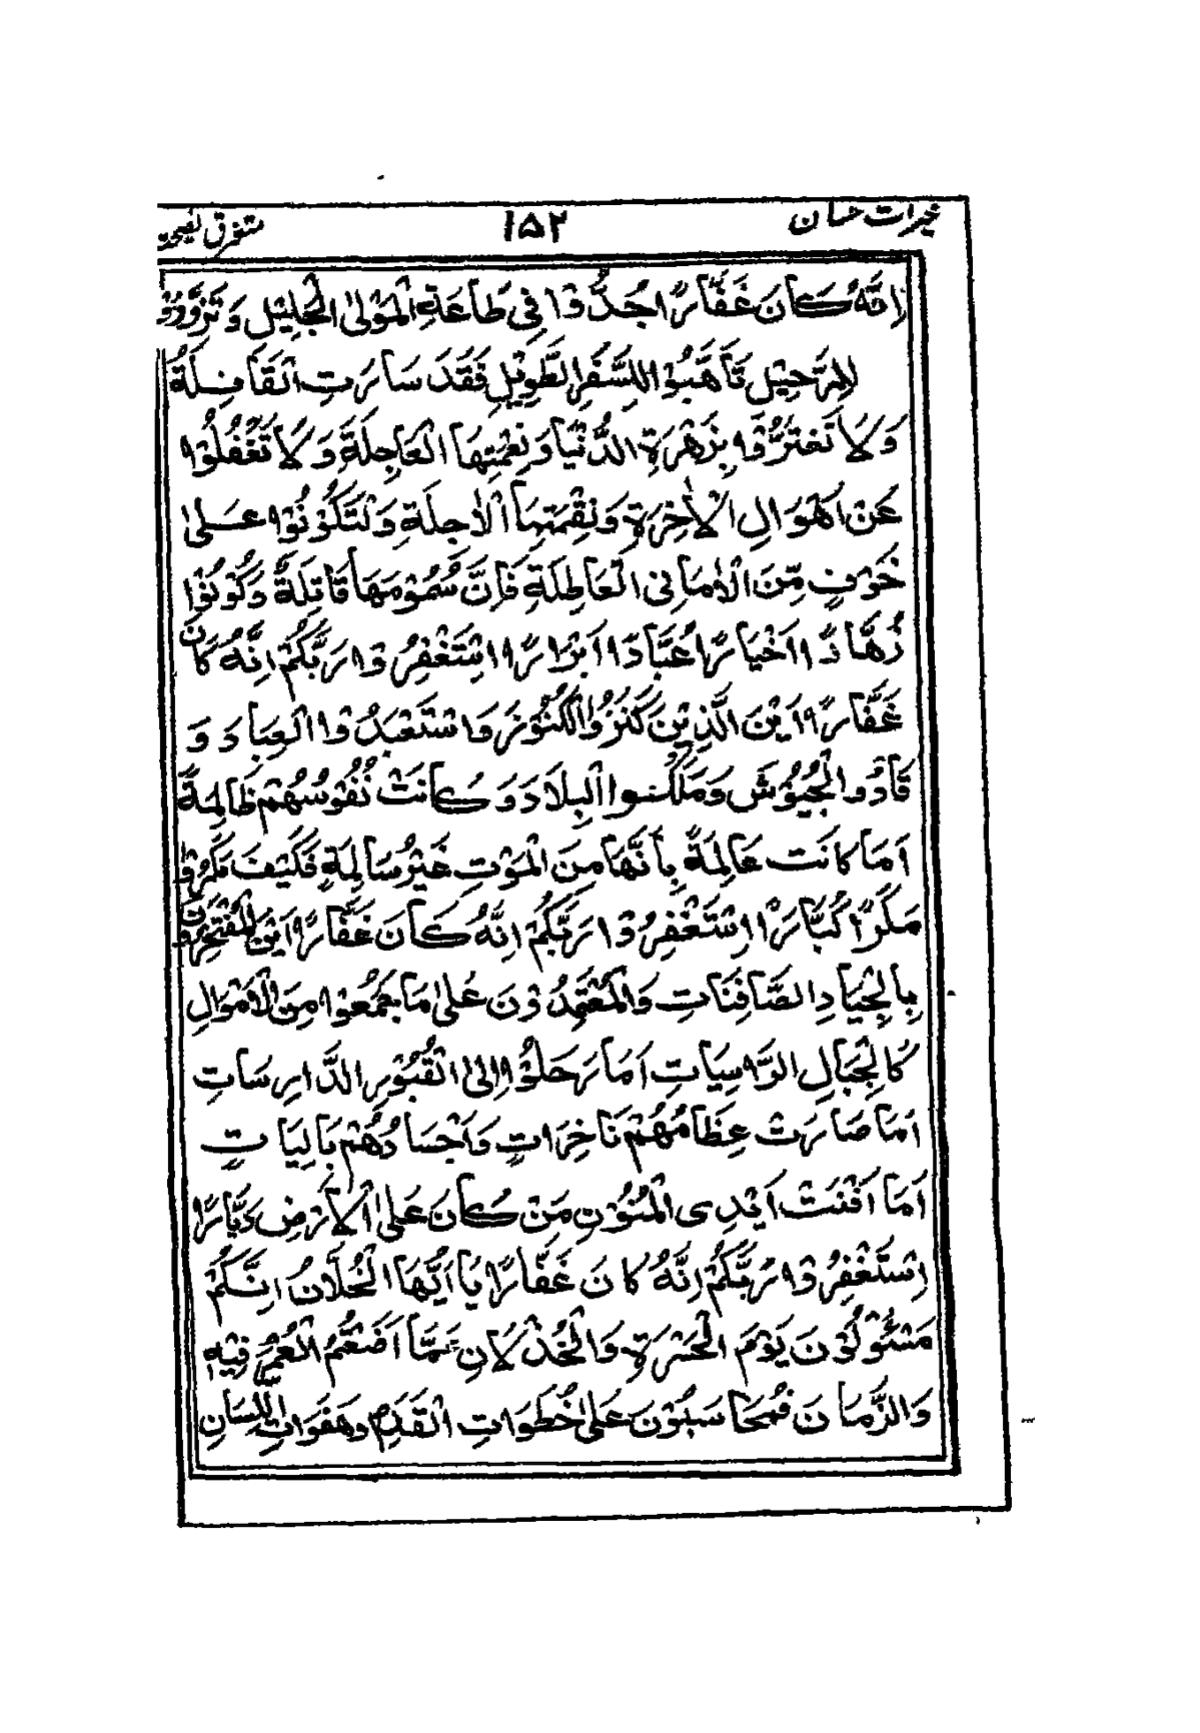 خیرات حسان ۱۵۲ متفرق نصیحت
اِنَّهٗ كَانَ غَفَّارًا جُدُّوْا فِیْ طَاعَةِ الْمَوْلٰی الْجَلِیْلِ وَ تَزَوَّدُوْا
لِلرَّحِیْلِ تَأَهَّبُوْا لِلسَّفَرِ الطَّوِیْلِ فَقَدَ سَارَتِ الْقَافِلَةُ
وَ لَا تَغْتَرُّوْا بِزَهْرَةِ الدُّنْیَا وَ نِعْمَتِهَا الْعَاجِلَةِ وَ لَا تَغْفُلُوْا
عَنْ اَهْوَالِ الْاٰخِرَةِ وَ نِقْمَتِهَا الْاٰجِلَةِ وَلْتَكُوْنُوْا عَلٰی
خَوْفٍ مِّنَ الْاَمَانِی الْعَاطِلَةِ فَاِنَّ سُمُوْمَهَا قَاتِلَةٌ وَ كُوْنُوْا
زُهَّادًا اَخْیَارًا عُبَّادًا اَبْرَارًا اِسْتَغْفِرُوْا رَبَّكُمْ اِنَّهٗ كَانَ
غَفَّارًا اَیْنَ الَّذِیْنَ كَنَزُوا الْكُنُوْزَ وَ اسْتَعْبَدُوْا الْعِبَادَ وَ
قَادُوا الْجُیُوْشَ وَ مَلَكُوا الْبِلَادَ وَ كَانَتْ نُفُوْسُهُمْ ظَالِمَةً
اَمَا كَانَت عَالِمَةً بِاَنَّهَا مِنَ الْمَوْتِ غَیْرُ سَالِمَةٍ فَكَیْفَ مَكَرُوْا
مَكَرًا كُبَّارًا اِسْتَغْفِرُوْا رَبَّكُمْ اِنَّهٗ كَانَ غَفَّارًا اَیْنَ الْمُفْتَخِرُوْنَ
بِالْجِیَادِ الصَّافِنَاتِ وَالْمُعْتَمِدُوْنَ عَلٰی مَا جَمَعُوْا مِنَ الْاَمْوَالِ
كَالْجِبَالِ الرَّاسِیَاتِ اَمَا رَحَلُوْا اِلَی الْقُبُوْرِ الدَّارِسَاتِ
اَمَا صَارَتْ عِظَامُهُمْ نَاخِرَاتٍ وَ اَجْسَادُهُمْ بَالِیَاتٍ
اَمَا اَفْنَتْ اَیْدِی الْمَنُوْنِ مَنْ كَانَ عَلَی الْاَرْضِ دَیَّارًا
اِسْتَغْفِرُوْا رَبَّكُمْ اِنَّهٗ كَانَ غَفَّارًا یَا اَیُّهَا الْخُلَّانُ اِنَّكُمْ
مَسْئُوْلُوْنَ یَوْمَ الْحَسْرَةِ وَالْخُذْلَانِ عَمَّا اَضَعْتُمُ الْعُمُرَ فِیْهِ
وَالزَّمَانَ فَمُحَاسَبُوْنَ عَلٰی خُطُوَاتِ الْقَدَمِ وَ هَفَوَاتِ اللِّسَانِ